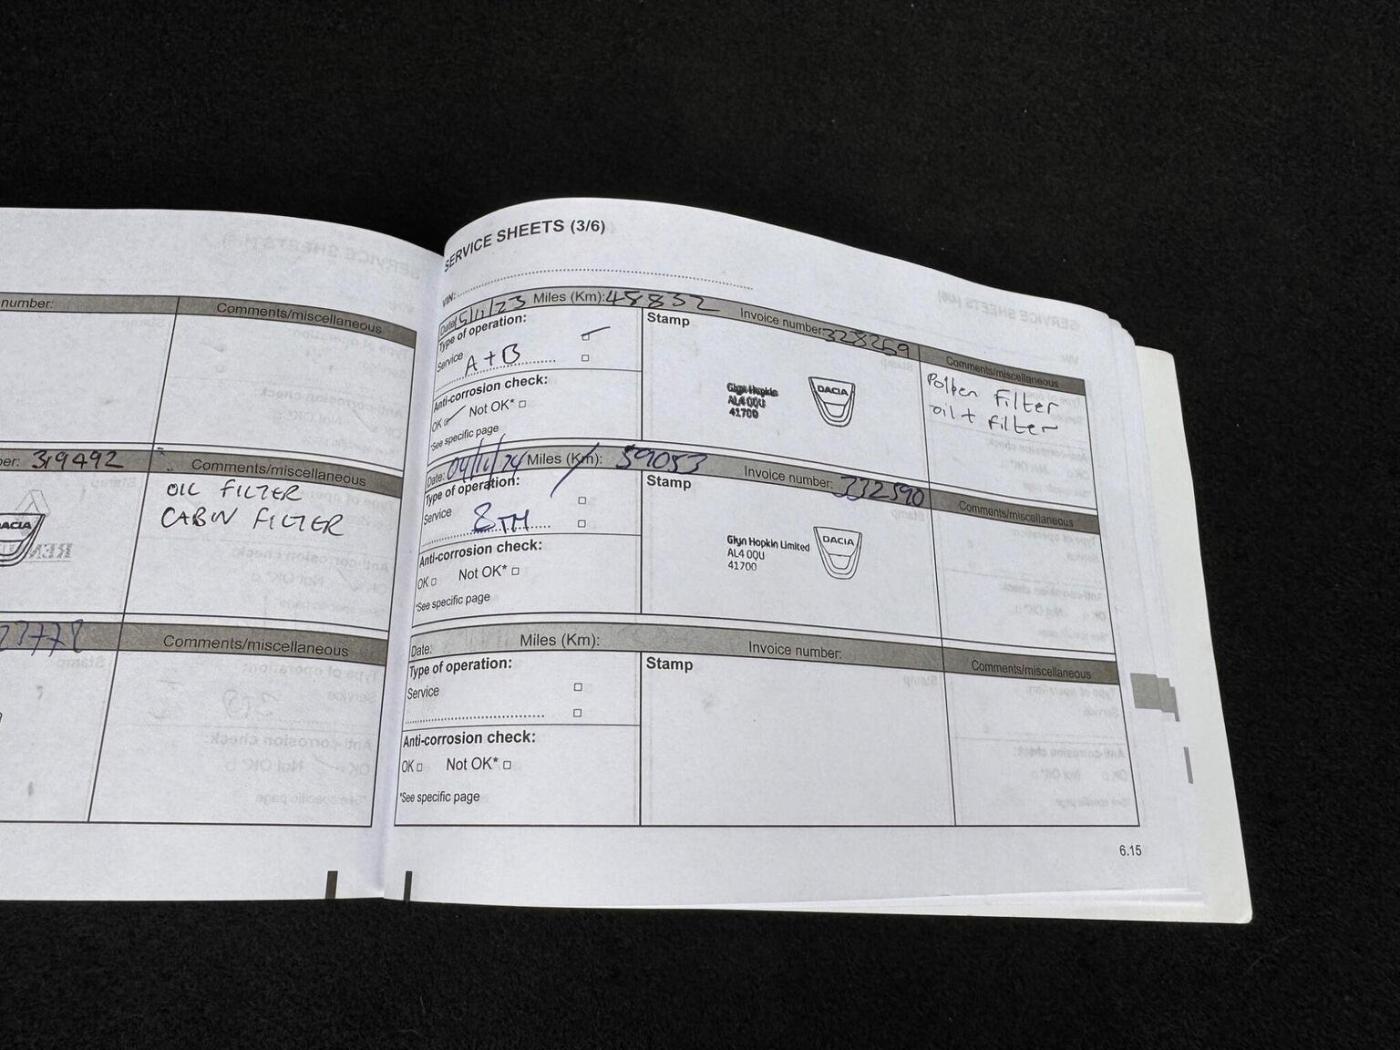 number:
Comments/miscellaneous
ber: 319492
Comments/miscellaneous
OIL FILTER
CABIN FILTER
DACIA
Comments/miscellaneous
SERVICE SHEETS (3/6)
VIN:
Date: 15/11/23 Miles (Km): 48832
Invoice number: 328269
Comments/miscellaneous
Type of operation:
Service A+B
Anti-corrosion check:
OK Not OK*
*See specific page
Stamp
Glyn Hopkin
AL4 0QU
41700
DACIA
Pollen Filter
oil + filter
Date: Miles (Km): 59053
Invoice number: 332590
Comments/miscellaneous
Type of operation:
Service 8TH
Anti-corrosion check:
OK Not OK*
*See specific page
Stamp
Glyn Hopkin Limited
AL4 0QU
41700
DACIA
Date: Miles (Km):
Invoice number:
Comments/miscellaneous
Type of operation:
Service
Anti-corrosion check:
OK Not OK*
*See specific page
Stamp
6.15